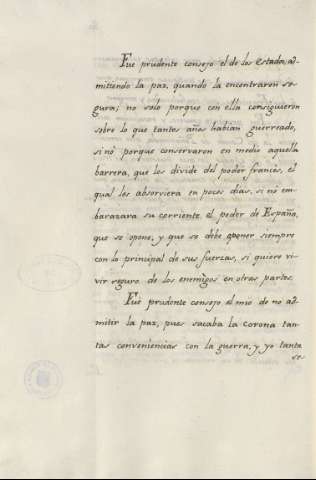 Fue prudente consejo el de los estados, ad-
mitiendo la paz, quando la encontraron se-
gura; no solo porque con ella consiguieron
sobre lo que tantos años habían guerreado,
sinó porque conservaron en medio aquella
barrera, que los divide del poder francés, el
qual los absorviera en pocos dias, si nó em-
barazara su corriente el poder de España,
que se opone, y que se debe oponer siempre
con lo principal de sus fuerzas, si quiere vi-
vir seguro de los enemigos en otras partes.
Fué prudente consejo el mio de no ad-
mitir la paz, pues sacaba la corona tan-
tas conveniencias con la guerra, y yo tanta
se-